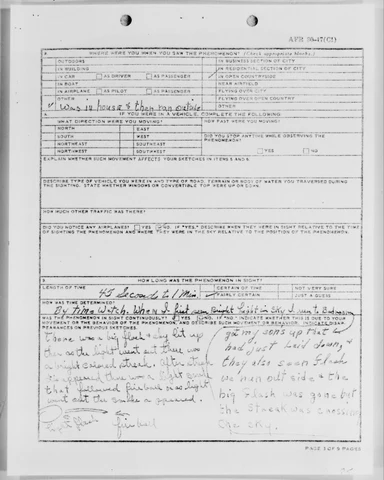 AFR 80-17(C1)
WHERE WERE YOU WHEN YOU SAW THE PHENOMENON? (Check appropriate blocks.)
OUTDOORS
IN BUSINESS SECTION OF CITY
IN BUILDING
IN RESIDENTIAL SECTION OF CITY
IN CAR AS DRIVER AS PASSENGER
IN OPEN COUNTRYSIDE
IN BOAT
NEAR AIRFIELD
IN AIRPLANE AS PILOT AS PASSENGER
FLYING OVER CITY
OTHER
FLYING OVER OPEN COUNTRY
Was in house & then ran outside
OTHER
IF YOU WERE IN A VEHICLE, COMPLETE THE FOLLOWING:
WHAT DIRECTION WERE YOU MOVING?
HOW FAST WERE YOU MOVING?
NORTH EAST
SOUTH WEST
DID YOU STOP ANYTIME WHILE OBSERVING THE PHENOMENON?
NORTHEAST SOUTHEAST
NORTHWEST SOUTHWEST
YES NO
EXPLAIN WHETHER SUCH MOVEMENT AFFECTS YOUR SKETCHES IN ITEMS 5 AND 6.
DESCRIBE TYPE OF VEHICLE YOU WERE IN AND TYPE OF ROAD, TERRAIN OR BODY OF WATER YOU TRAVERSED DURING THE SIGHTING. STATE WHETHER WINDOWS OR CONVERTIBLE TOP WERE UP OR DOWN.
HOW MUCH OTHER TRAFFIC WAS THERE?
DID YOU NOTICE ANY AIRPLANES? YES NO. IF "YES," DESCRIBE WHEN THEY WERE IN SIGHT RELATIVE TO THE TIME OF SIGHTING THE PHENOMENON AND WHERE THEY WERE IN THE SKY RELATIVE TO THE POSITION OF THE PHENOMENON.
HOW LONG WAS THE PHENOMENON IN SIGHT?
LENGTH OF TIME
45 Seconds to 1 Min.
CERTAIN OF TIME
NOT VERY SURE
FAIRLY CERTAIN
JUST A GUESS
HOW WAS TIME DETERMINED?
By time Watch. When I first seen Bright Light in Sky I ran to Bedroom
WAS THE PHENOMENON IN SIGHT CONTINUOUSLY? YES NO. INDICATE WHETHER THIS IS DUE TO YOUR
MOVEMENT OR THE BEHAVIOR OF THE PHENOMENON, AND DESCRIBE SUCH MOVEMENT OR BEHAVIOR.
There was a big flash & sky lit up
then as the light went out there was
a bright streak
that followed fire ball
get my sons up that
had just laid down,
they also seen Flash
we ran out side & the
big Flash was gone but
the streak was crossing
the sky.
fire ball
PAGE 3 OF 5 PAGES